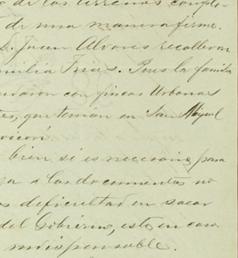 o de los terrenos comple-
de una manera firme.
S. Juan Alvares recalleron
milia Frias. Pues la familia
con fincas Urbanas
tes, que tenian en San Miguel
bien si es necesario, para
a a los documentos no
es dificultad en sacar
del Gobierno, esto en caso
indispensable.